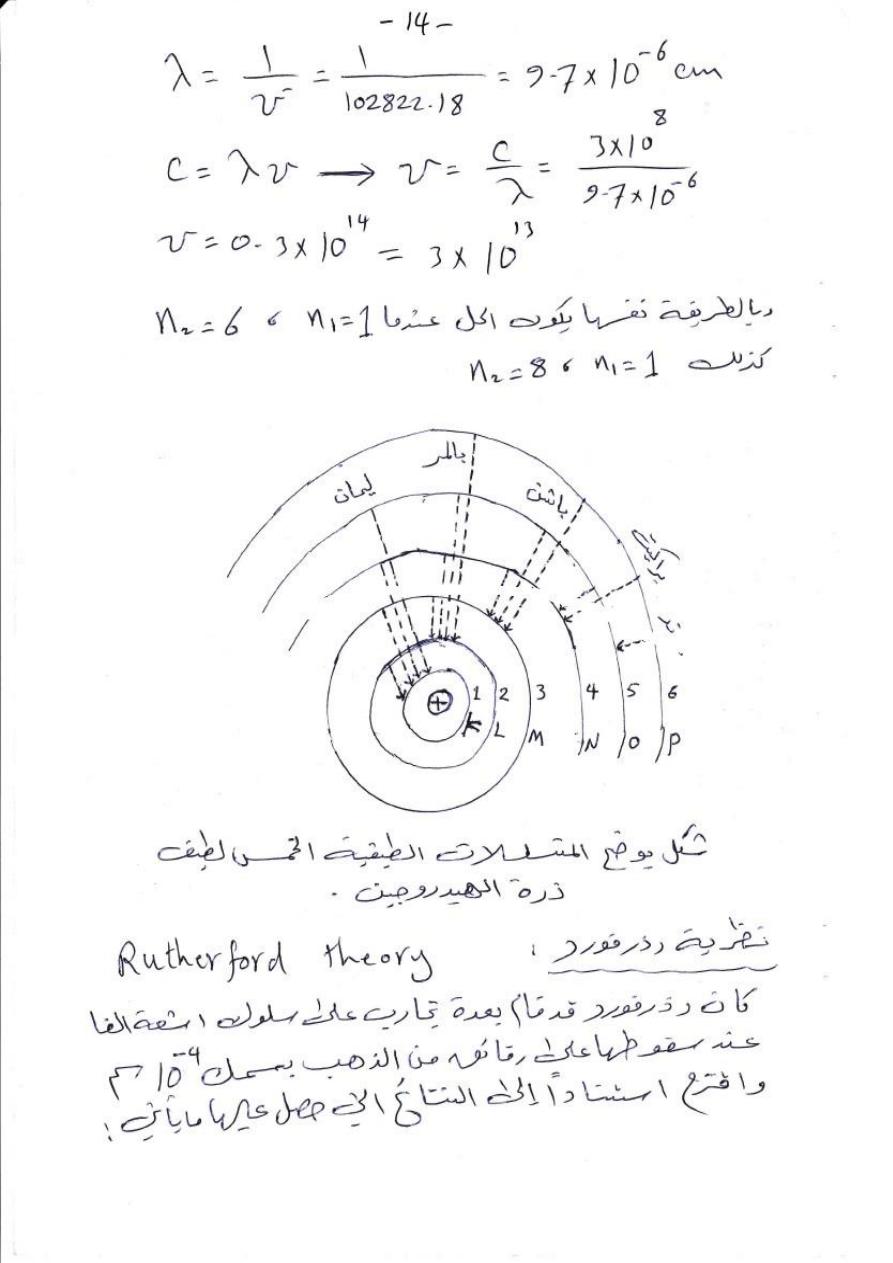 - 14 -
λ = 1 / ν̄ = 1 / 102822.18 = 9.7 × 10⁻⁶ cm
C = λν → ν = C / λ = 3×10⁸ / 9.7×10⁻⁶
ν = 0.3 × 10¹⁴ = 3 × 10¹³
وبالطريقة نفسها يكون الحل عندما n₁=1 ، n₂=6
كذلك n₁=1 ، n₂=8
بالمر
ليمان
باشن
براكيت
1 2 3 4 5 6
K L M N O P
شكل يوضح المتسلسلات الطيفية الخمس لطيف
ذرة الهيدروجين .
نظرية رذرفورد : Rutherford theory
كان رذرفورد قد قام بعدة تجارب على سلوك اشعة الفا
عند سقوطها على رقائق من الذهب بسمك 10⁻⁴ سم
واقترح استناداً إلى النتائج التي حصل عليها ما يأتي :